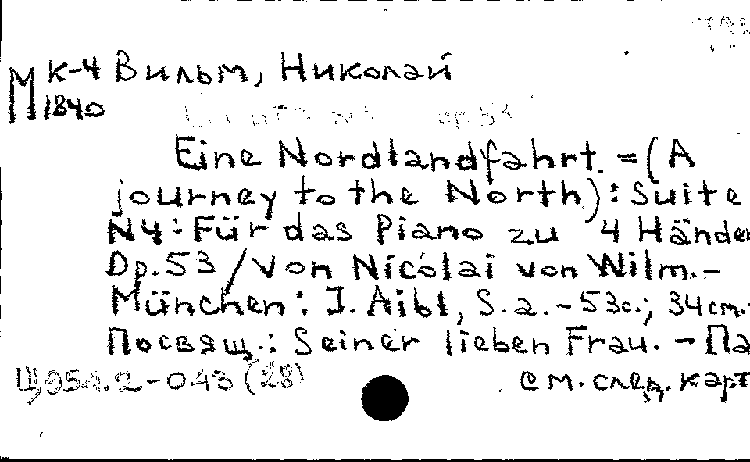 К-4 Вильм, Николай
М
1840
Eine Nordlandfahrt. = (A
journey to the North) : Suite
N4 : Für das Piano zu 4 Händen
Op. 53 / von Nicolai von Wilm. –
München : J. Aibl, S. a. – 53с.; 34см. –
Посвящ.: Seiner lieben Frau. – Па
Щ951.2-043 (28)
см. след. карт